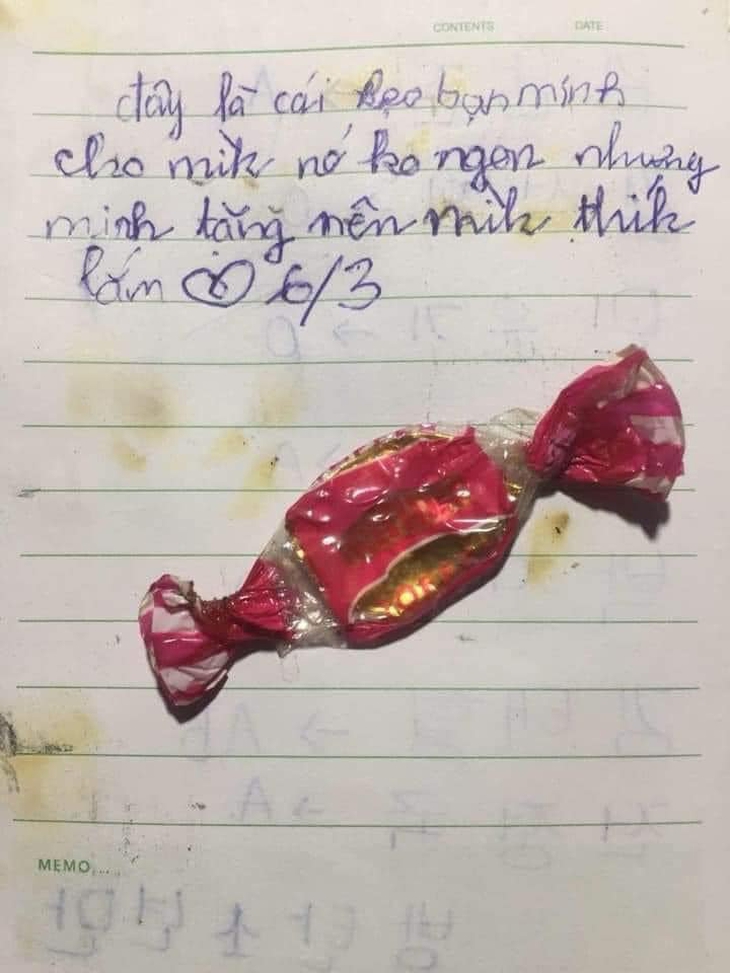 CONTENTS DATE
đây là cái kẹo bạn mình
cho mik nó ko ngon nhưng
mình tặng nên mik thík
lắm ♡ 6/3
MEMO